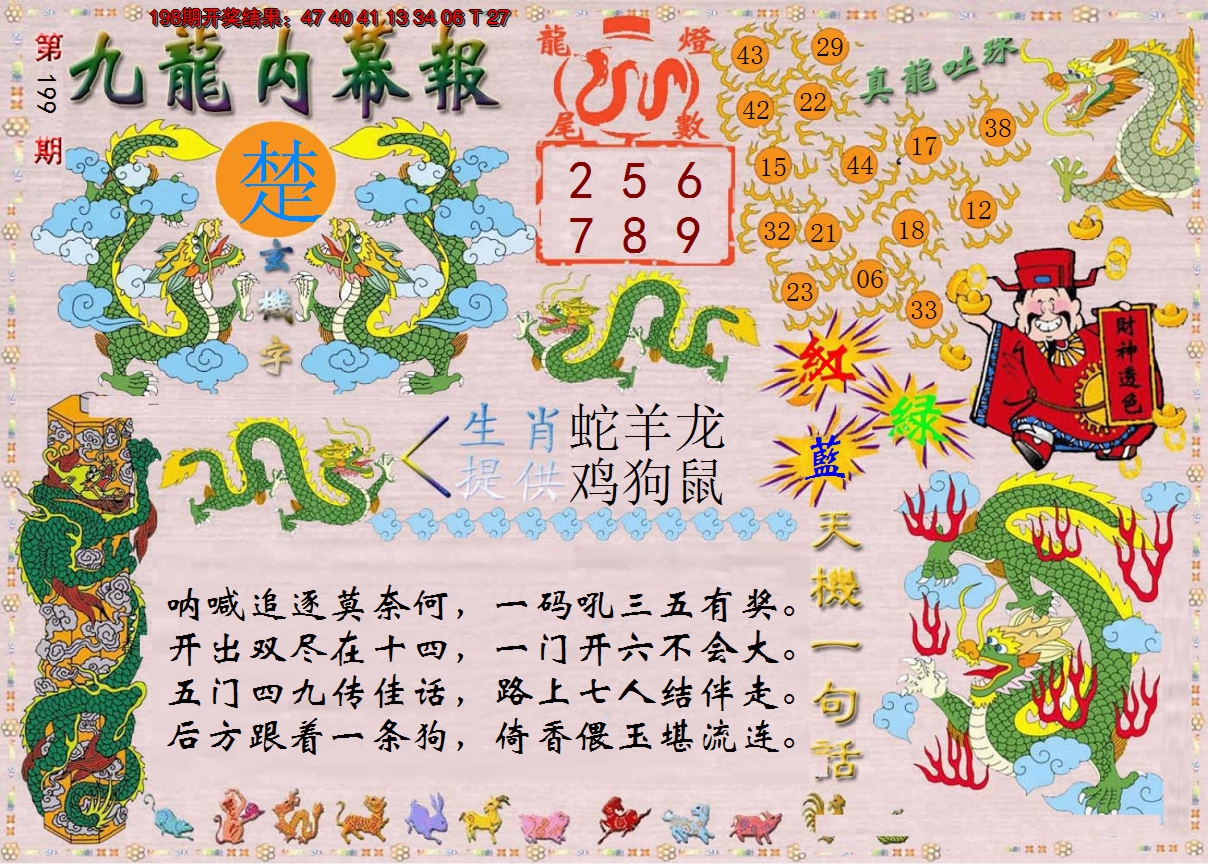 198期开奖结果：47 40 41 13 34 06 T 27
第199期
九龍内幕報
楚
玄機字
龍燈尾數
2 5 6
7 8 9
真龍吐珠
43 29
42 22
15 44 17 38
32 21 18 12
23 06 33
財神透色
紅
綠
藍
生肖提供
蛇羊龙
鸡狗鼠
天機一句話
呐喊追逐莫奈何，一码吼三五有奖。
开出双尽在十四，一门开六不会大。
五门四九传佳话，路上七人结伴走。
后方跟着一条狗，倚香偎玉堪流连。